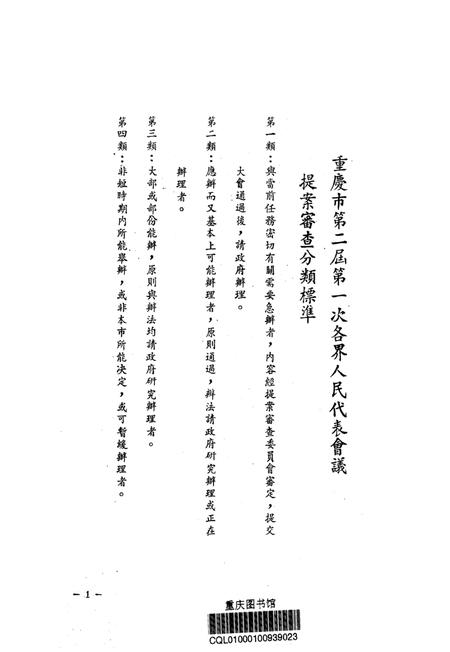 重慶市第二屆第一次各界人民代表會議
提案審查分類標準
第一類：與當前任務密切有關需要急辦者，內容經提案審查委員會審定，提交
大會通過後，請政府辦理。
第二類：應辦而又基本上可能辦理者，原則通過，辦法請政府研究辦理或正在
辦理者。
第三類：大部或部份能辦，原則與辦法均請政府研究辦理者。
第四類：非短時期內所能舉辦，或非本市所能决定，或可暫緩辦理者。
- 1 -
重庆图书馆
CQL01000100939023